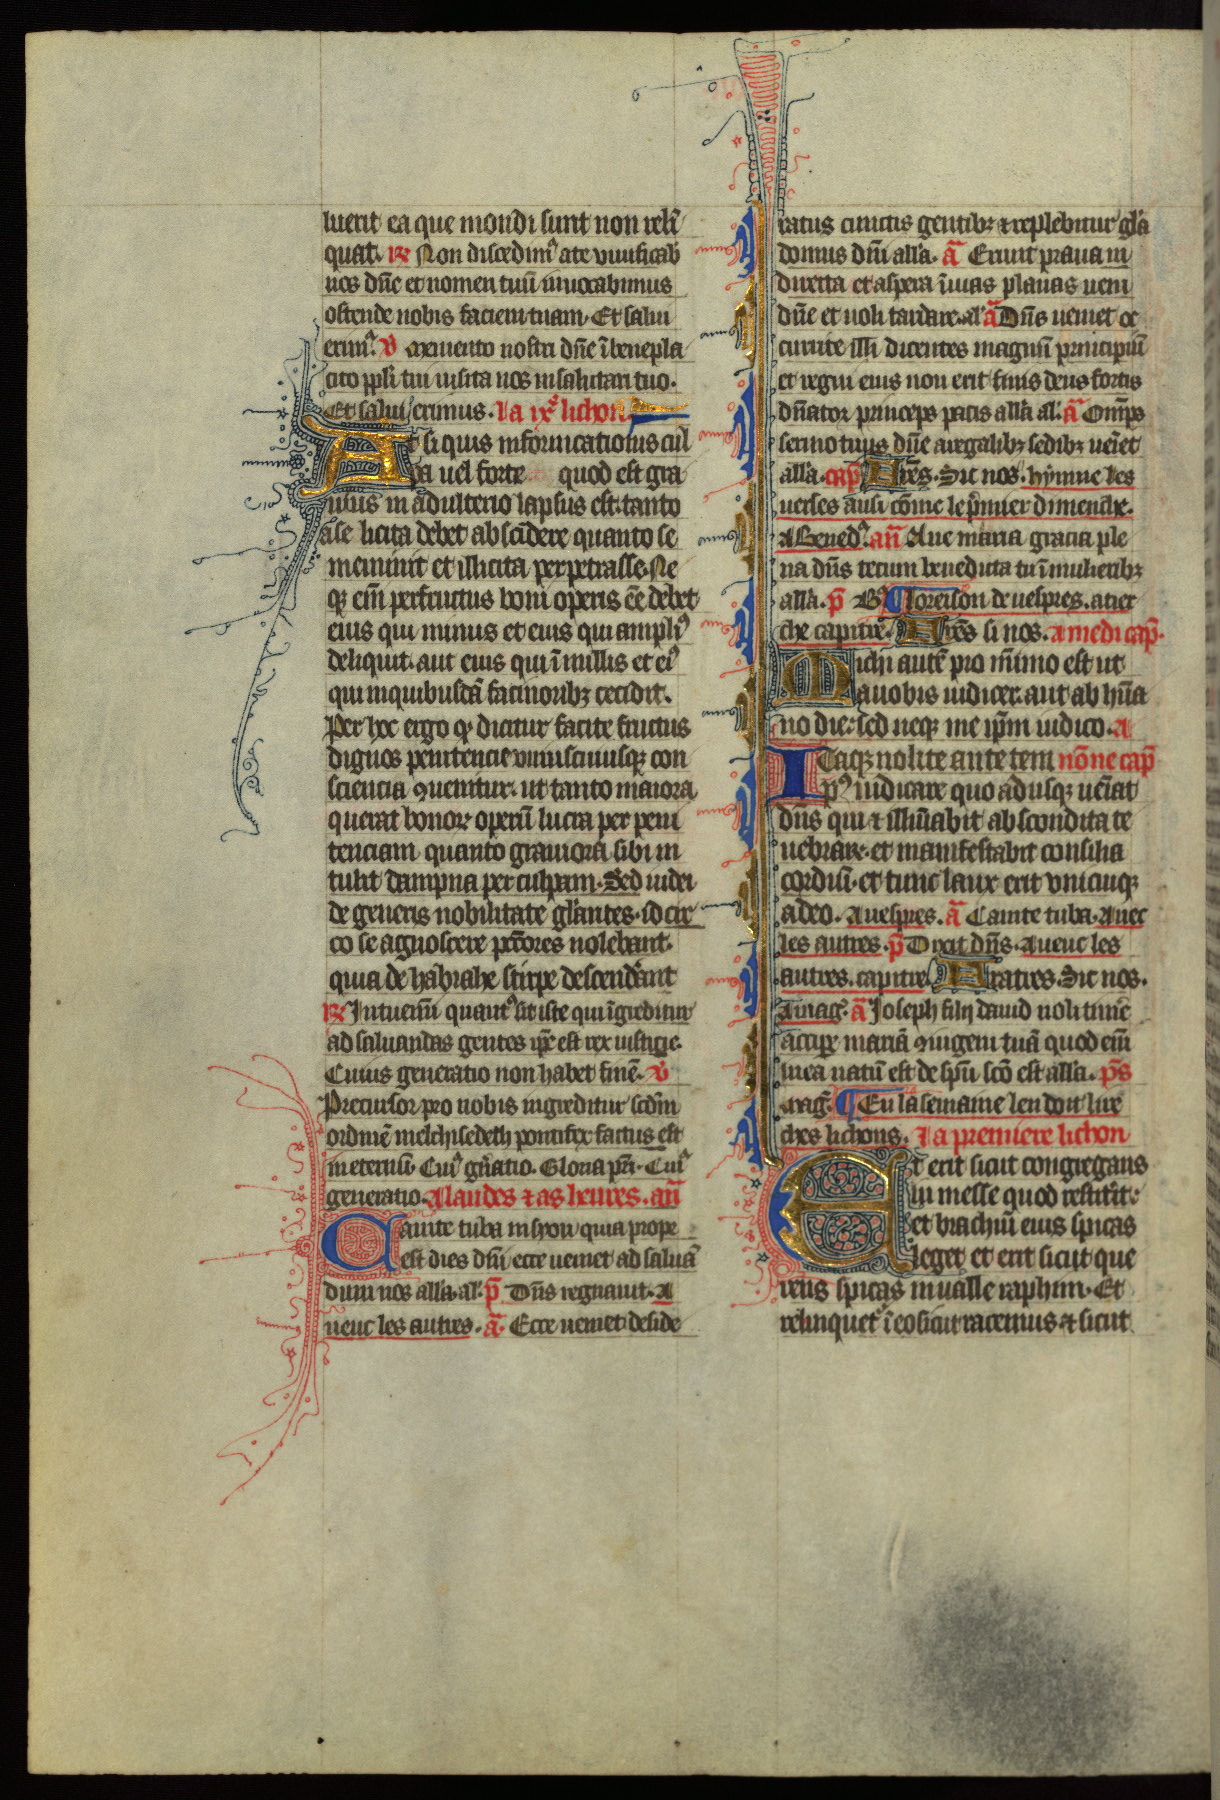 luerit ea que mondi sunt non reli᷑
quat. R Non discedim᷑ a te viuificab᷑
nos dñe et nomen tuũ inuocabimus
ostende nobis faciem tuam. Et salui
erim᷑. V Memento nostri dñe ĩ benepla
cito ppłi tui uisita nos in salutari tuo.
Et salui erimus. La ix᷑ lichon
At si quis in fornicationis cul
pa uel forte quod est gra
uius in adulterio lapsus est. tanto
a se licita debet abscidere quanto se
meminit et illicita perpetrasse. Ne
q᷑ eĩ par fructus boni operis eē debet
eius qui minus et eius qui ampli᷒
deliquit. aut eius qui ĩ nullis et ei᷒
qui in quibusdã facinoribȝ cecidit.
Per hoc ergo q᷑ dicitur facite fructus
dignos penitencie vnius cuiusqȝ con
sciencia queritur. ut tanto maiora
querat bonoꝝ operũ lucra per peni
tenciam quanto grauiora sibi in
tulit dampna per culpam. Sed iudei
de generis nobilitate glantes. id cir
co se agnoscere pctores nolebant.
quia de habrahe stirpe descendant
R Intuemĩ quant᷒ sit iste qui ĩgreditur
ad saluandas gentes ip̃e est rex iusticie.
Cuius generatio non habet finẽ. V
Precursor pro nobis ingreditur scdm
ordinẽ melchisedech pontifex factus est
in eternũ. Cui᷒ gñatio. Gloria pr̃i. Cui᷒
generatio. A laudes ⁊ as heures. an̄
Canite tuba in syon quia prope
est dies dñi ecce ueniet ad saluã
dum nos alla. al. p̄ Dñs regnauit. A
ueuc les autres. ā Ecce ueniet deside
ratus cunctis gentibȝ ⁊ replebitur gła
domus dñi alla. ā Erunt praua in
directa et aspera ĩ uias planas ueni
dñe et noli tardare. al᷑ ā Dñs ueniet oc
currite illi dicentes magnũ principiũ
et regni eius non erit finis deus fortis
dñator princeps pacis alla al. ā Omp̃s
sermo tuus dñe a regalibȝ sedibȝ ueĩet
alla. cap̃ Fr̃es. Sic nos. hymne les
uerses ausi cõme le p̃mier dimenche.
A Bened᷑. an̄ Aue maria gracia ple
na dñs tecum benedicta tu ĩ mulieribȝ
alla. p̄ B ¶ Loreison de uespres. a tier
che capitre. Fr̃es si nos. A medi cap̃.
Michi autẽ pro mĩmo est ut
a uobis iudicer. aut ab hũa
no die. sed neqȝ me ip̃m iudico. A
Itaqȝ nolite ante tem nõne cap̃
p᷒ iudicare quo adusqȝ ueĩat
dñs qui ⁊ illũĩabit abscondita te
nebraꝝ. et manifestabit consilia
cordiũ. et tunc laux erit vnicuiqȝ
a deo. A uespres. ā Canite tuba. Auec
les autres. p̄ Dixit dñs. Aueuc les
autres. capitre. Fratres. Sic nos.
A mag᷑. ā Joseph fili dauid noli timẽ
accip̃e mariã coniugem tuã quod eĩ
in ea natũ est de sp̃u sc̃o est alla. p̃s
Mag᷑. ¶ En la semaine len doit lire
ches lichons. La premiere lichon
Et erit sicut congregans
in messe quod restit᷑it:
et brachiũ eius spicas
leget et erit sicut que
rens spicas in ualle raphim. Et
relinquet᷑ ĩ eo sicut racemus ⁊ sicut